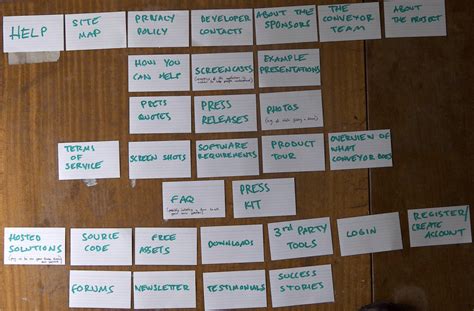 HELP
SITE
MAP
PRIVACY
POLICY
DEVELOPER
CONTACTS
ABOUT THE
SPONSORS
THE
CONVEYOR
TEAM
ABOUT
THE PROJECT
HOW YOU
CAN HELP
SCREENCASTS
EXAMPLE
PRESENTATIONS
PRESS
QUOTES
PRESS
RELEASES
PHOTOS
TERMS
OF
SERVICE
SCREEN SHOTS
SOFTWARE
REQUIREMENTS
PRODUCT
TOUR
OVERVIEW OF
WHAT
CONVEYOR DOES
FAQ
PRESS
KIT
HOSTED
SOLUTIONS
SOURCE
CODE
FREE
ASSETS
DOWNLOADS
3rd PARTY
TOOLS
LOGIN
REGISTER/
CREATE
ACCOUNT
FORUMS
NEWSLETTER
TESTIMONIALS
SUCCESS
STORIES